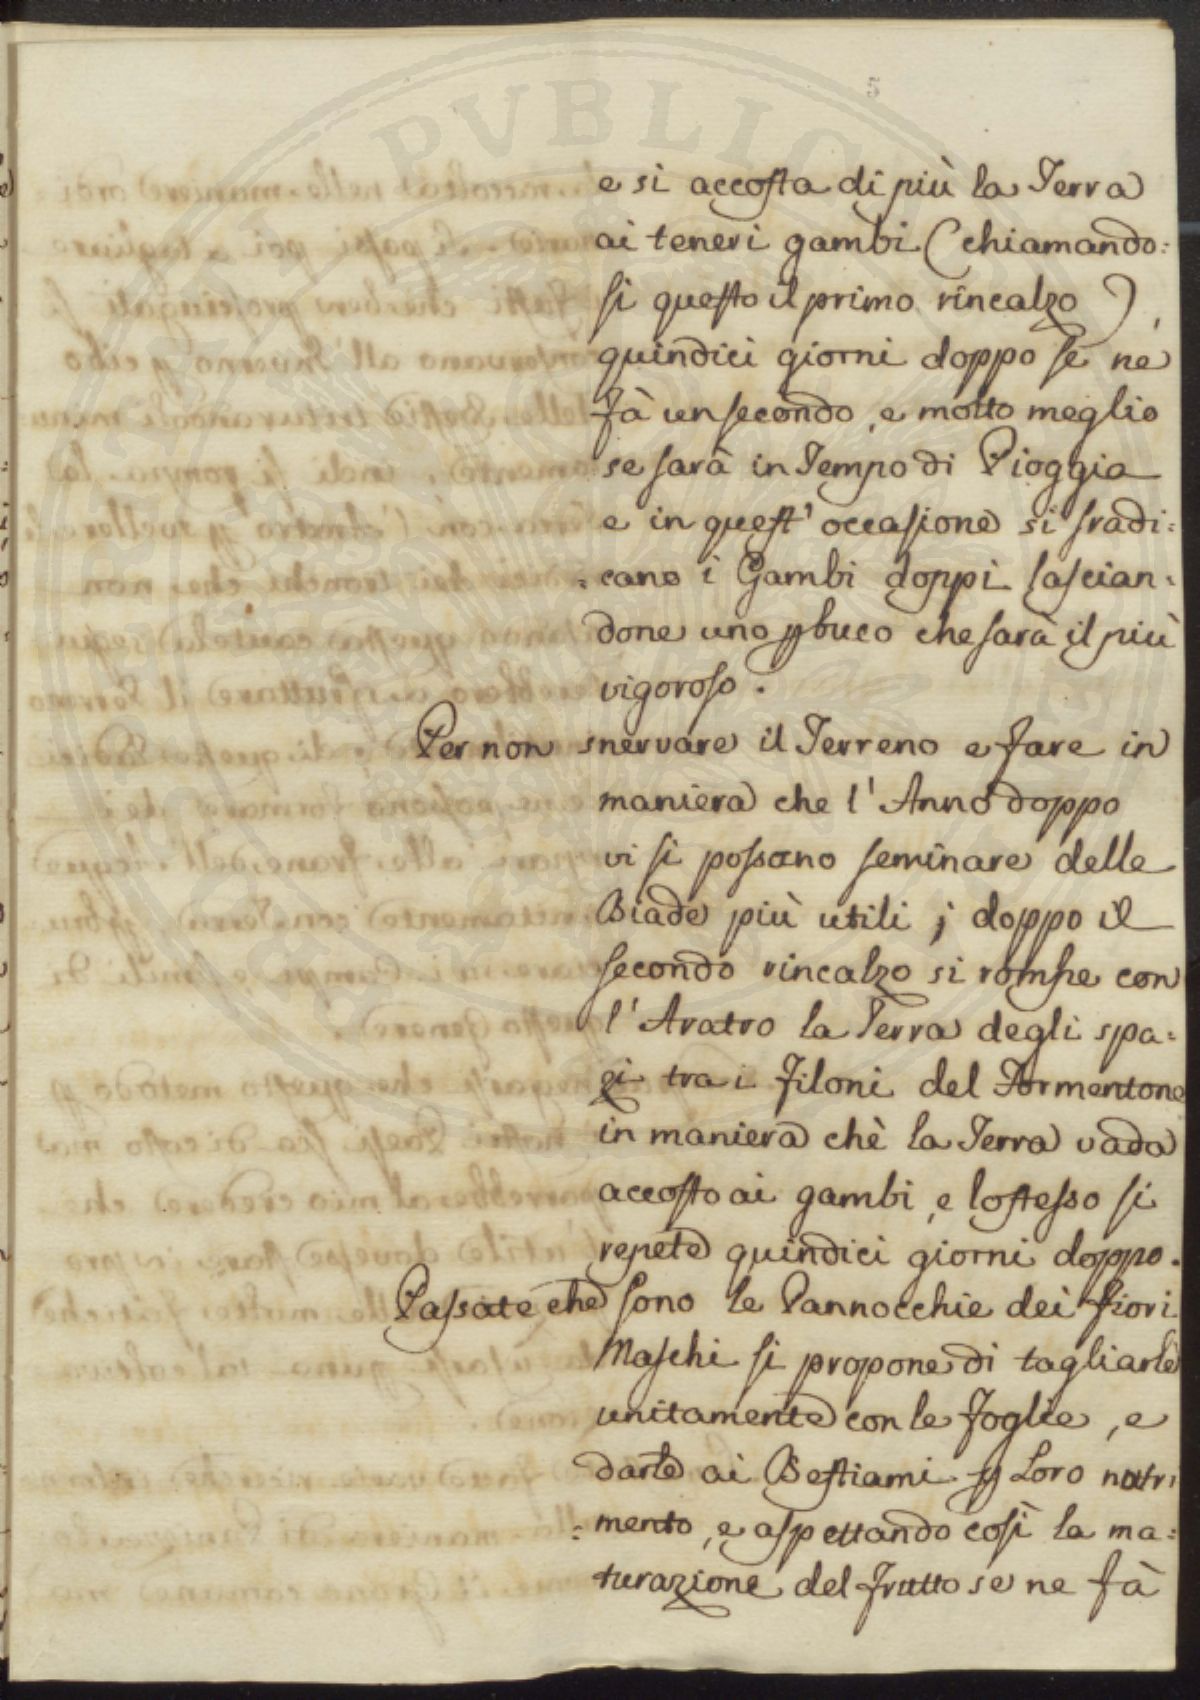 5
e si accosta di più la Terra
ai teneri gambi (chiamando:
si questo il primo rincalzo),
quindici giorni doppo se ne
fà un secondo, e molto meglio
se sarà in Tempo di Pioggia
e in quest' occasione si sradi:
:cano i Gambi doppi lascian:
done uno p buco che sarà il più
vigoroso.
Per non snervare il Terreno e fare in
maniera che l'Anno doppo
vi si possano seminare delle
Biade più utili; doppo il
secondo rincalzo si rompe con
l'Aratro la Terra degli spa:
zi tra i filoni del Formentone
in maniera chè la Terra vada
accosto ai gambi, e lostesso si
repete quindici giorni doppo.
Passate che sono le Pannocchie dei fiori
Maschi si propone di tagliarle
unitamente con le foglie, e
darle ai Bestiami p Loro nutri
:mento, e aspettando così la ma:
turazione del frutto se ne fà